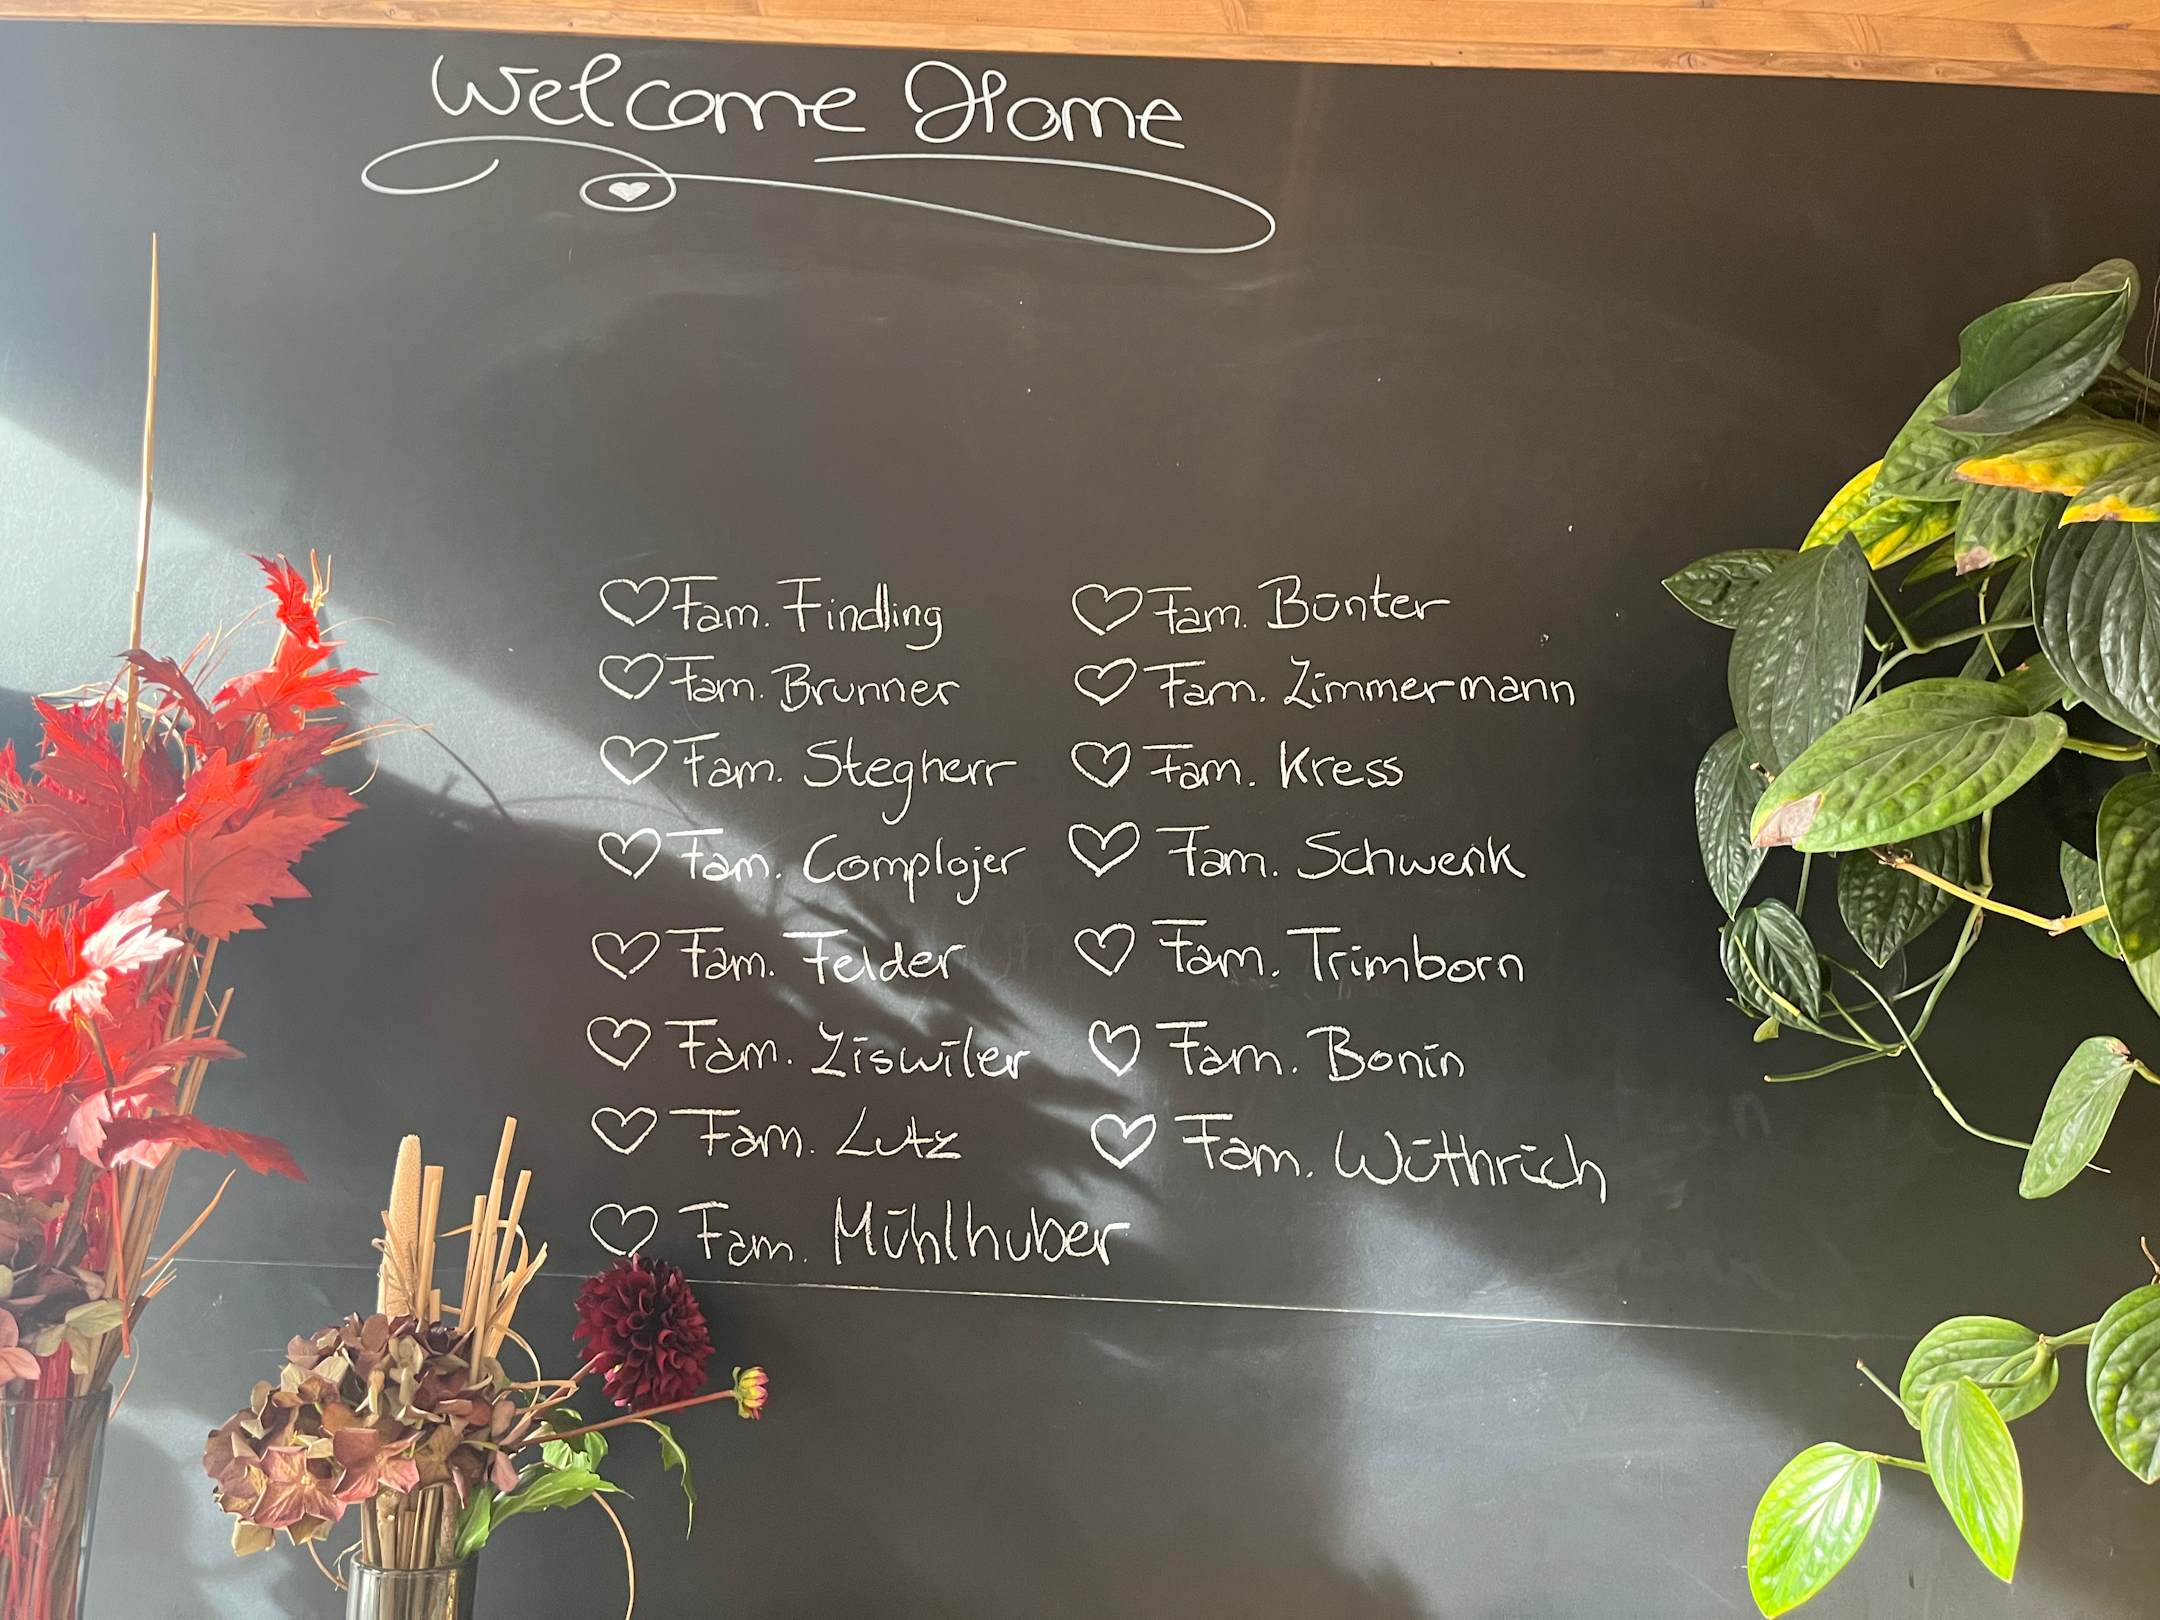 Welcome Home
Fam. Findling
Fam. Brunner
Fam. Stegherr
Fam. Complojer
Fam. Felder
Fam. Ziswiler
Fam. Lutz
Fam. Mühlhuber
Fam. Bünter
Fam. Zimmermann
Fam. Kress
Fam. Schwenk
Fam. Trimborn
Fam. Bonin
Fam. Wüthrich